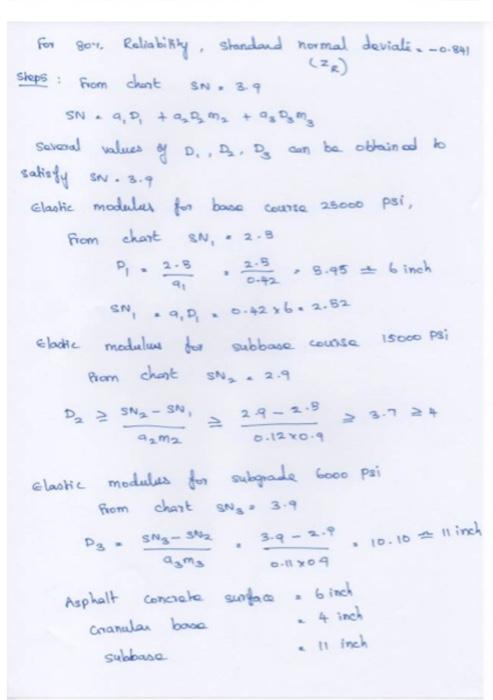 For 80% Reliability, Standard normal deviate = -0.841
(ZR)
Steps : From chart SN = 3.9
SN = a1D1 + a2D2m2 + a3D3m3
Several values of D1, D2, D3 can be obtained to
satisfy SN = 3.9
Elastic modulus for base course 25000 psi,
From chart SN1 = 2.5
D1 = 2.5/a1 = 2.5/0.42 = 5.95 ≃ 6 inch
SN1 = a1D1 = 0.42 x 6 = 2.52
Elastic modulus for subbase course 15000 psi
From chart SN2 = 2.9
D2 ≥ (SN2 - SN1)/(a2m2) ≥ (2.9 - 2.5)/(0.12x0.9) ≥ 3.7 ≥ 4
Elastic modulus for subgrade 6000 psi
From chart SN3 = 3.9
D3 = (SN3 - SN2)/(a3m3) = (3.9 - 2.9)/(0.11x0.9) = 10.10 ≃ 11 inch
Asphalt concrete surface = 6 inch
Granular base = 4 inch
subbase = 11 inch